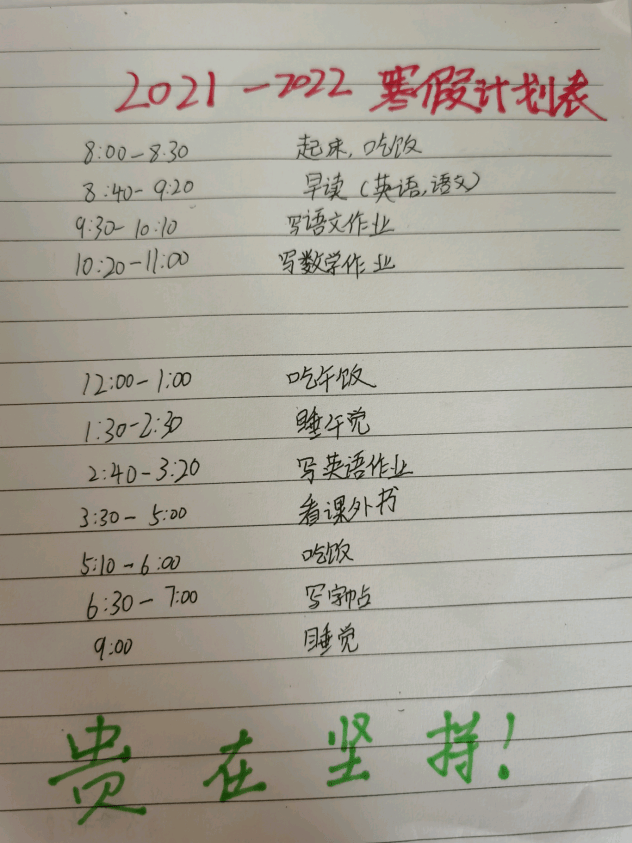 2021-2022 寒假计划表
8:00-8:30 起床,吃饭
8:40-9:20 早读(英语,语文)
9:30-10:10 写语文作业
10:20-11:00 写数学作业
12:00-1:00 吃午饭
1:30-2:30 睡午觉
2:40-3:20 写英语作业
3:30-5:00 看课外书
5:10-6:00 吃饭
6:30-7:00 写字帖
9:00 睡觉
贵在坚持!